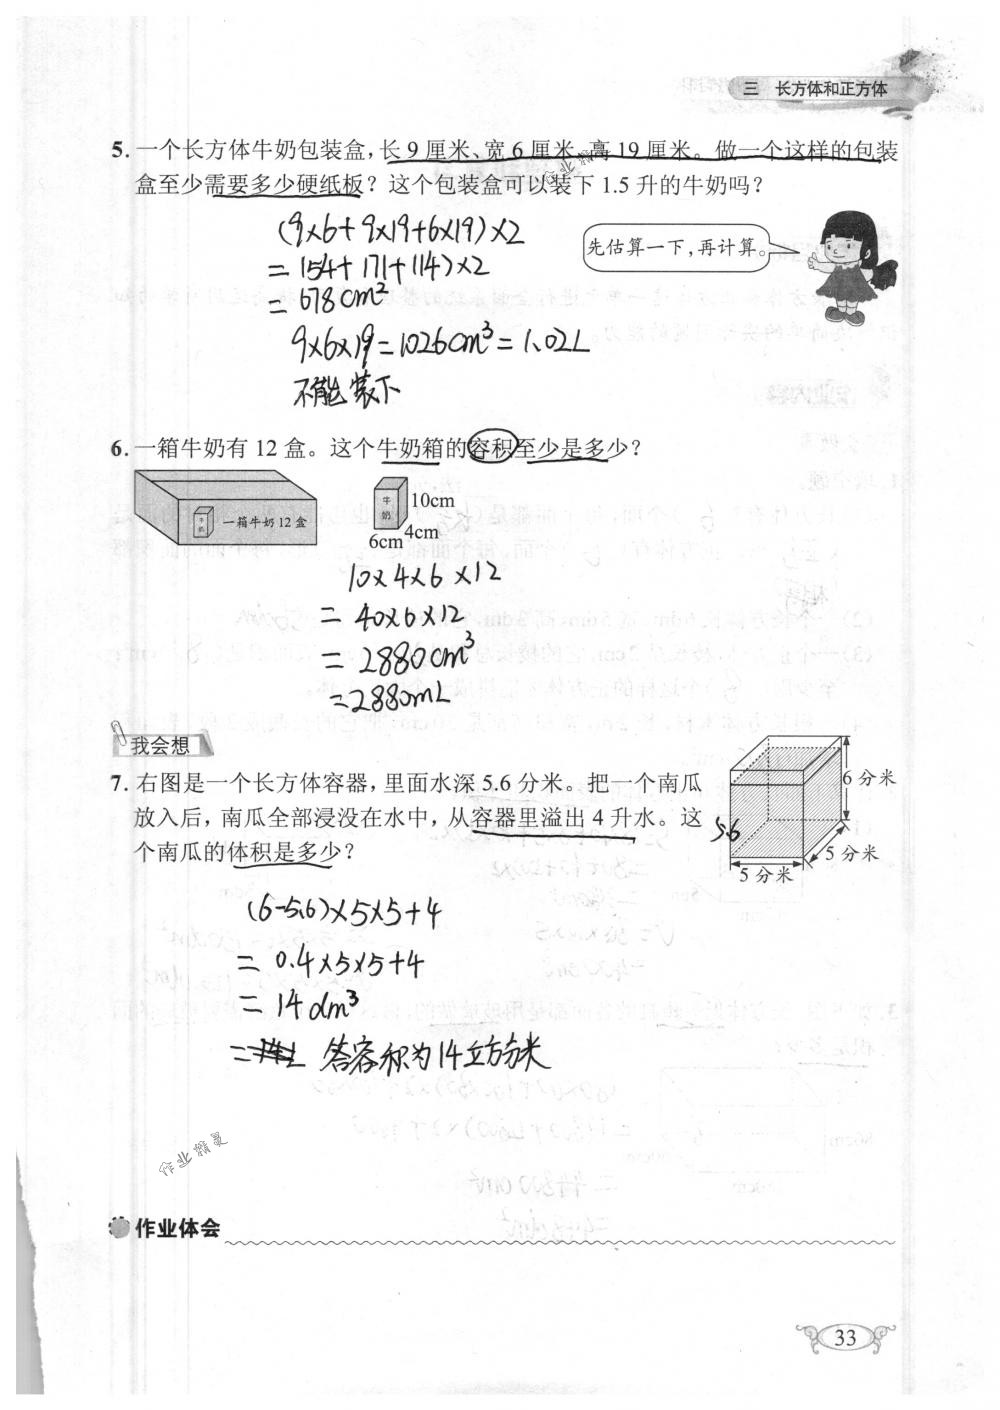 三 长方体和正方体
5. 一个长方体牛奶包装盒,长 9 厘米、宽 6 厘米、高 19 厘米。做一个这样的包装
盒至少需要多少硬纸板?这个包装盒可以装下 1.5 升的牛奶吗?
(9×6+9×19+6×19)×2
= 154+171+114)×2
= 678cm²
9×6×19=1026cm³=1.02L
不能装下
先估算一下,再计算。
6. 一箱牛奶有 12 盒。这个牛奶箱的容积至少是多少?
牛奶
一箱牛奶 12 盒
牛奶
10cm
4cm
6cm
10×4×6×12
= 40×6×12
= 2880cm³
=2880mL
我会想
7. 右图是一个长方体容器,里面水深 5.6 分米。把一个南瓜
放入后,南瓜全部浸没在水中,从容器里溢出 4 升水。这
个南瓜的体积是多少?
6 分米
5.6
5 分米
5 分米
(6-5.6)×5×5+4
= 0.4×5×5+4
= 14dm³
= 答容积为14立方分米
作业精灵
作业体会
33